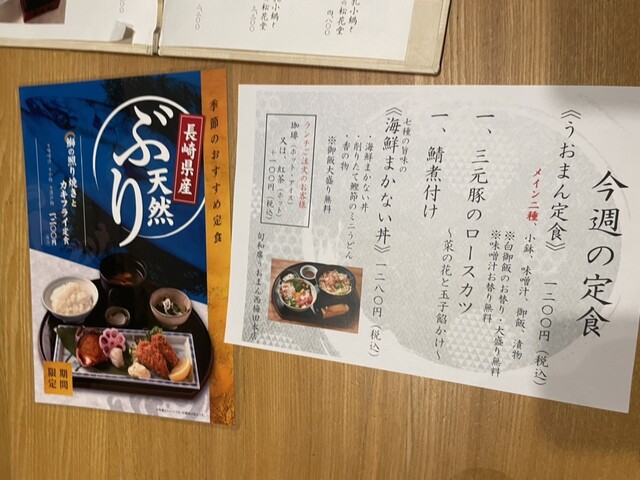 乳小鍋と
の松花堂
四、八〇〇
季節のおすすめ定食
長崎県産
天然
ぶり
鰤の照り焼きと
カキフライ定食
期間
限定
今週の定食
《うおまん定食》 一二〇〇円(税込)
メイン二種、小鉢、味噌汁、御飯、漬物
※白御飯のお替り・大盛り無料
※味噌汁お替り無料
一、三元豚のロースカツ
〜菜の花と玉子餡かけ〜
一、鯖煮付け
《海鮮まかない丼》 一二八〇円(税込)
七種の旨味の
・海鮮まかない丼
・削りたて鰹節のミニうどん
・香の物
※御飯大盛り無料
ランチご注文のお客様
珈琲(ホット・アイス)
又は、紅茶(ホット)
+一〇〇円(税込)
旬和席うおまん西梅田本店